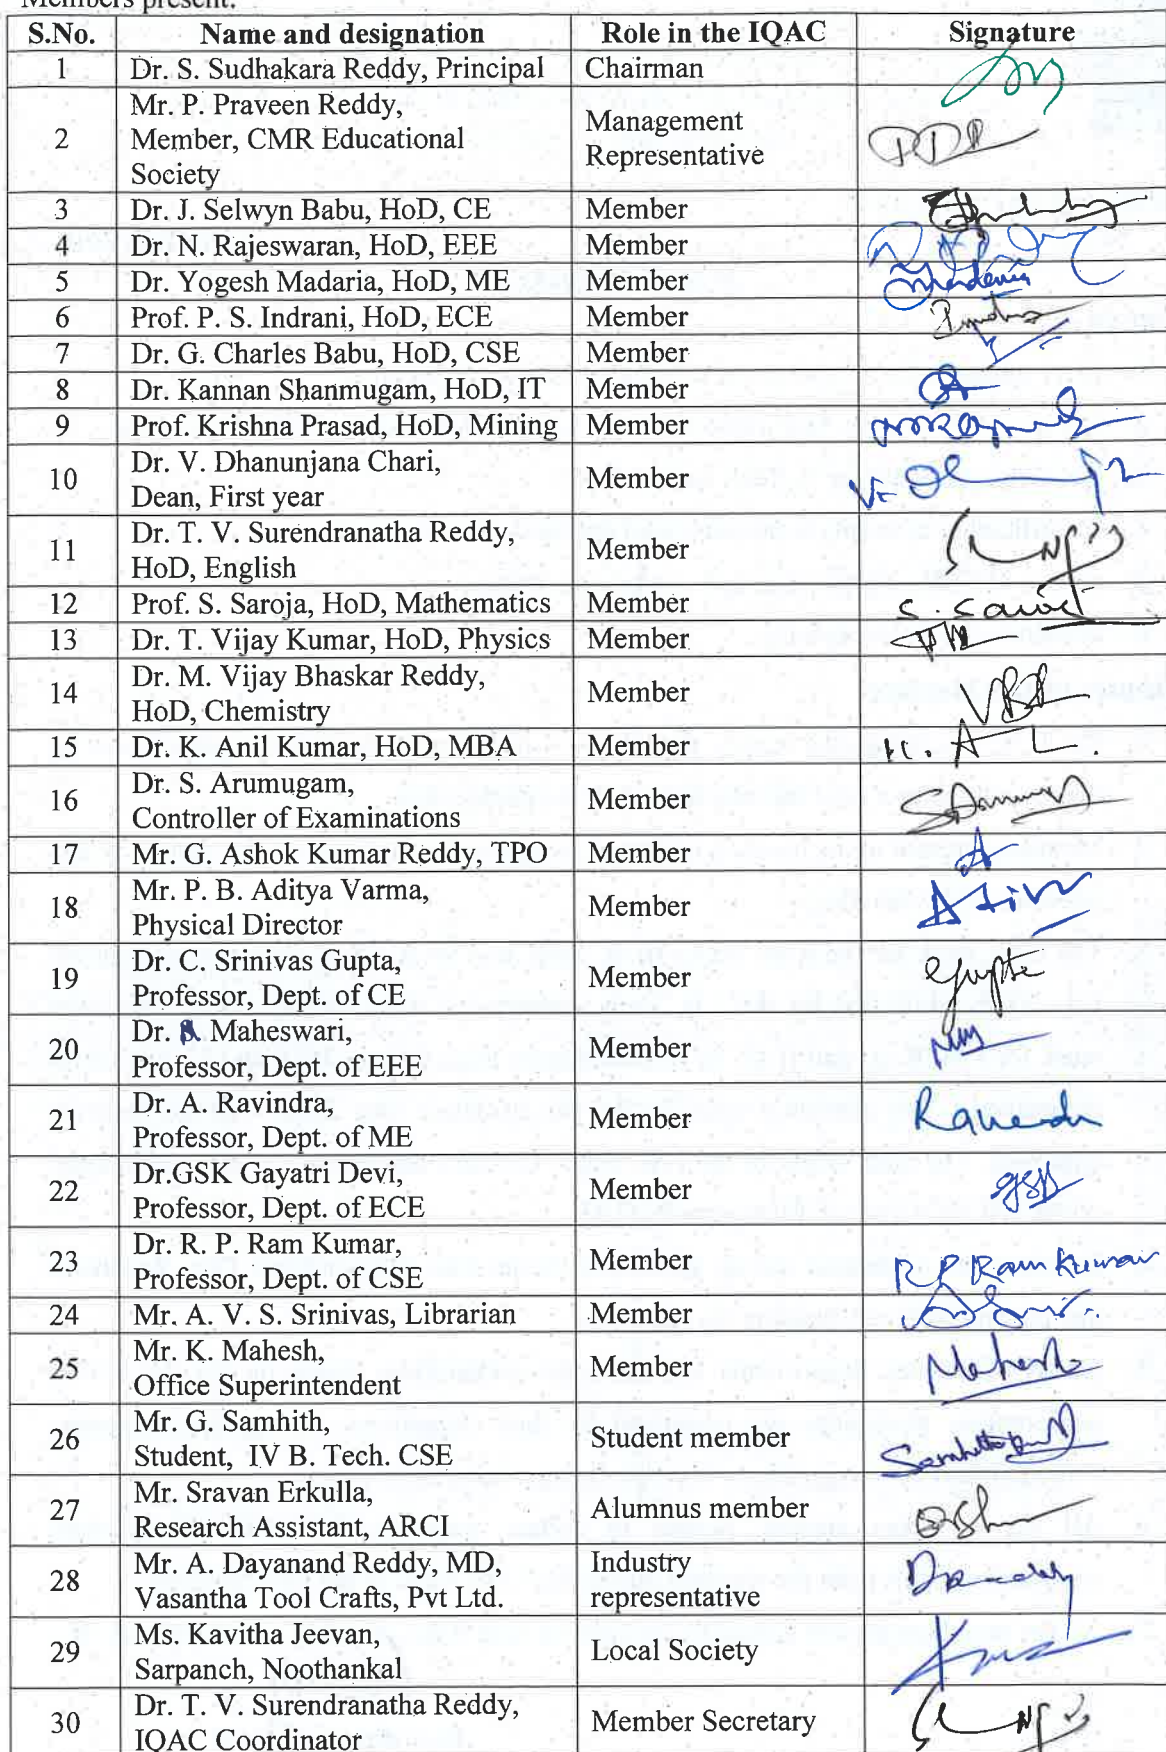 Members present:
S.No. Name and designation Role in the IQAC Signature
1 Dr. S. Sudhakara Reddy, Principal Chairman
2 Mr. P. Praveen Reddy,
Member, CMR Educational
Society Management
Representative
3 Dr. J. Selwyn Babu, HoD, CE Member
4 Dr. N. Rajeswaran, HoD, EEE Member
5 Dr. Yogesh Madaria, HoD, ME Member
6 Prof. P. S. Indrani, HoD, ECE Member
7 Dr. G. Charles Babu, HoD, CSE Member
8 Dr. Kannan Shanmugam, HoD, IT Member
9 Prof. Krishna Prasad, HoD, Mining Member
10 Dr. V. Dhanunjana Chari,
Dean, First year Member
11 Dr. T. V. Surendranatha Reddy,
HoD, English Member
12 Prof. S. Saroja, HoD, Mathematics Member
13 Dr. T. Vijay Kumar, HoD, Physics Member
14 Dr. M. Vijay Bhaskar Reddy,
HoD, Chemistry Member
15 Dr. K. Anil Kumar, HoD, MBA Member
16 Dr. S. Arumugam,
Controller of Examinations Member
17 Mr. G. Ashok Kumar Reddy, TPO Member
18 Mr. P. B. Aditya Varma,
Physical Director Member
19 Dr. C. Srinivas Gupta,
Professor, Dept. of CE Member Gupta
20 Dr. Maheswari,
Professor, Dept. of EEE Member
21 Dr. A. Ravindra,
Professor, Dept. of ME Member
22 Dr.GSK Gayatri Devi,
Professor, Dept. of ECE Member
23 Dr. R. P. Ram Kumar,
Professor, Dept. of CSE Member R P Ram Kumar
24 Mr. A. V. S. Srinivas, Librarian Member
25 Mr. K. Mahesh,
Office Superintendent Member
26 Mr. G. Samhith,
Student, IV B. Tech. CSE Student member
27 Mr. Sravan Erkulla,
Research Assistant, ARCI Alumnus member
28 Mr. A. Dayanand Reddy, MD,
Vasantha Tool Crafts, Pvt Ltd. Industry
representative
29 Ms. Kavitha Jeevan,
Sarpanch, Noothankal Local Society
30 Dr. T. V. Surendranatha Reddy,
IQAC Coordinator Member Secretary